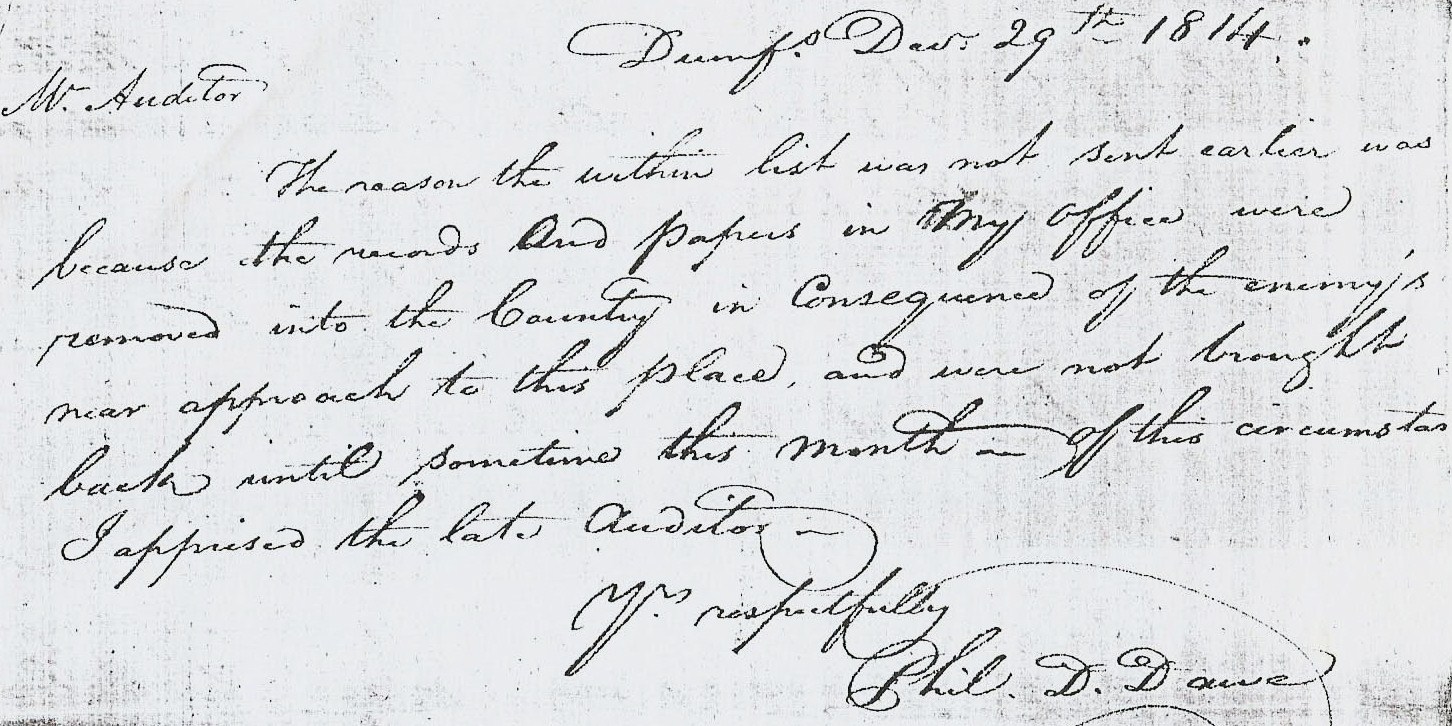 Dumfs. Decr. 29th 1814.
Mr. Auditor
The reason the within list was not sent earlier was
because the records And papers in My office were
removed into the Country in Consequence of the enemy's
near approach to this place, and were not brought
back until sometime this Month — of this circumstan
I apprised the late Auditor —
Yrs respectfully
Phil. D. Dawe